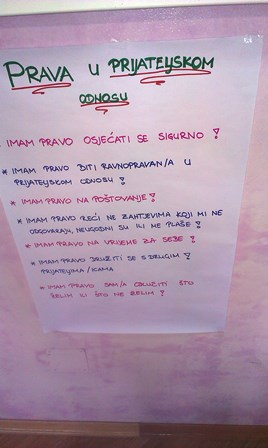 PRAVA U PRIJATELJSKOM
ODNOSU
IMAM PRAVO OSJEĆATI SE SIGURNO !
* IMAM PRAVO BITI RAVNOPRAVAN/A U
PRIJATELJSKOM ODNOSU !
* IMAM PRAVO NA POŠTOVANJE !
* IMAM PRAVO REĆI NE ZAHTJEVIMA KOJI MI NE
ODGOVARAJU, NEUGODNI SU ILI ME PLAŠE !
* IMAM PRAVO NA VRIJEME ZA SEBE !
* IMAM PRAVO DRUŽITI SE S DRUGIM
PRIJATELJIMA/ICAMA
* IMAM PRAVO SAM/A ODLUČITI ŠTO
ŽELIM ILI ŠTO NE ŽELIM !